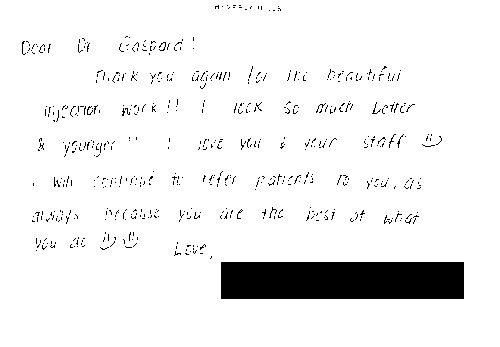 BEVERLY HILLS
Dear Dr. Gaspard!
Thank you again for the beautiful
injection work!! I look so much better
& younger!! I love you & your staff
I will continue to refer patients to you, as
always because you are the best at what
you do
Love,